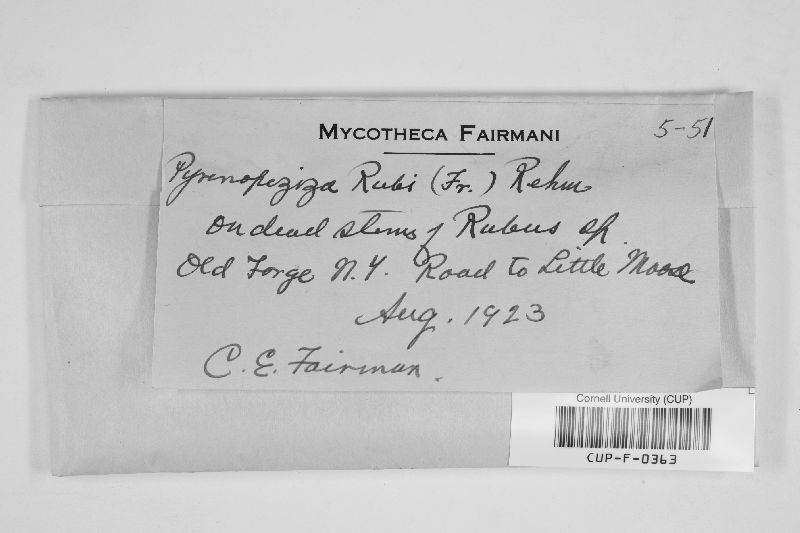 MYCOTHECA FAIRMANI
5-51
Pyrenopeziza Rubi (Fr.) Rehm
on dead stems of Rubus sp.
Old Forge N.Y. Road to Little Moose
Aug. 1923
C. E. Fairman.
Cornell University (CUP)
CUP-F-0363